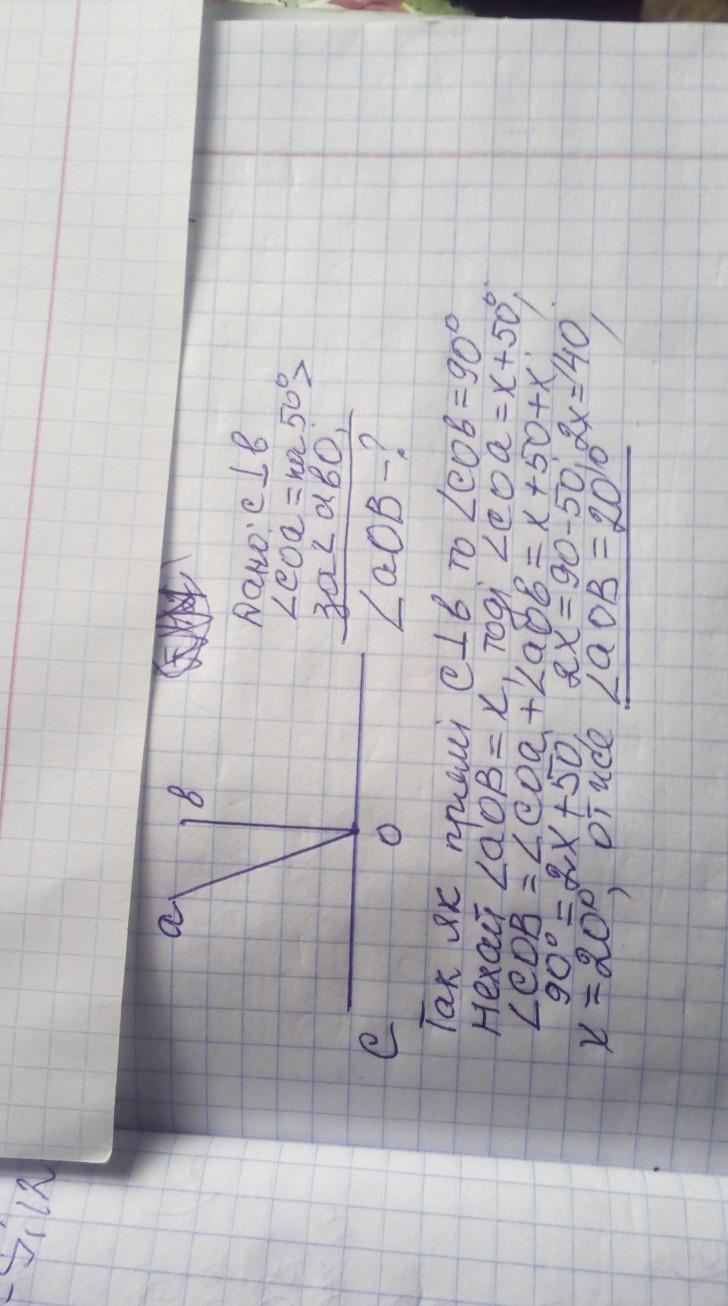 a
в
C
O
Дано: C⊥в
∠COa = на 50° >
за ∠aвO,
∠aOB - ?
Так як прямі C⊥в то ∠COв = 90°
Нехай ∠aOB = x, тоді ∠COa = x + 50°,
∠COB = ∠COa + ∠aOв = x + 50 + x,
90° = 2x + 50, 2x = 90 - 50, 2x = 40,
x = 20°, отже ∠aOB = 20°